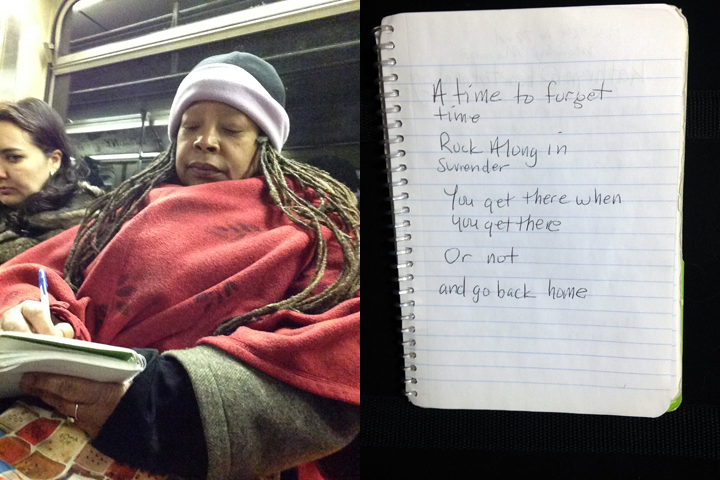 A time to forget
time
Rock Along in
Surrender
You get there when
you get there
Or not
and go back home